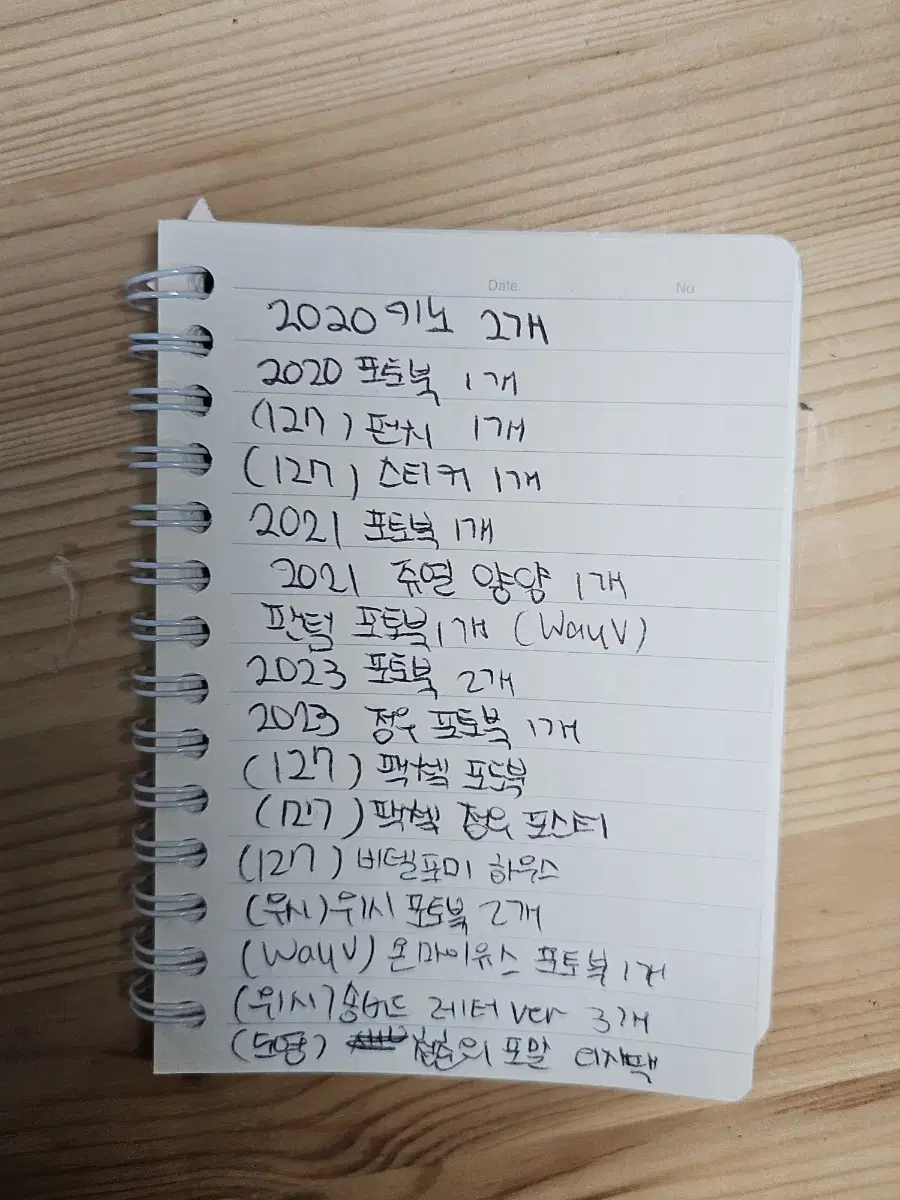 Date.
No
2020 키노 2개
2020 포토북 1개
(127) 펀치 1개
(127) 스티커 1개
2021 포토북 1개
2021 쥬얼 양양 1개
판텀 포토북 1개 (WayV)
2023 포토북 2개
2023 정우 포토북 1개
(127) 팩첵 포토북
(127) 팩첵 정우 포스터
(127) 비델포미 하우스
(위시) 위시 포토북 2개
(WayV) 온마이유스 포토북 1개
(위시) 송버드 레터 ver 3개
(도영) 청춘의 포말 디지팩